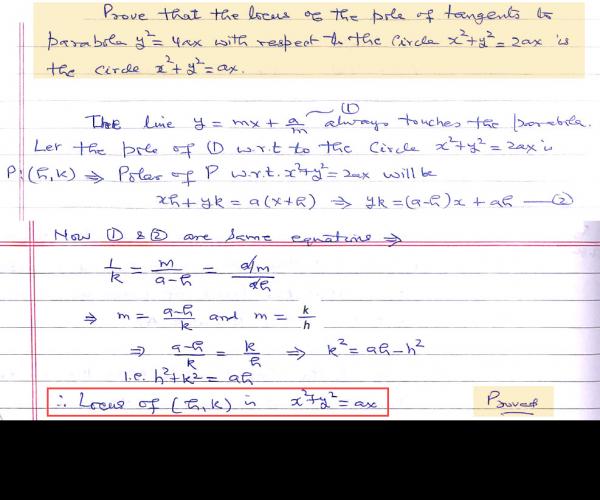 Prove that the locus of the pole of tangents to
parabola y²=4ax with respect to the circle x²+y²=2ax is
the circle x²+y²=ax.
The line y = mx + a/m ~ ① always touches the parabola.
Let the pole of ① w.r.t to the circle x²+y²=2ax is
P:(h,k) ⇒ Polar of P w.r.t. x²+y²=2ax will be
xh+yk = a(x+h) ⇒ yk=(a-h)x + ah — ②
Now ① & ② are same equations ⇒
1/k = m/(a-h) = (a/m)/(ah)
⇒ m = (a-h)/k and m = k/h
⇒ (a-h)/k = k/h ⇒ k² = ah-h²
i.e. h²+k² = ah
∴ Locus of (h,k) is x²+y²=ax
Proved